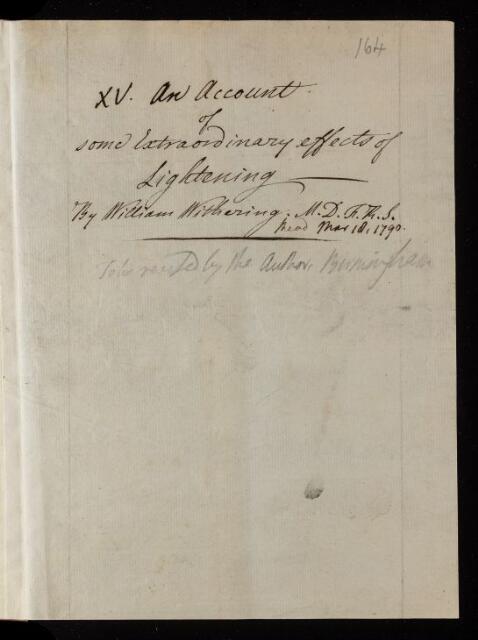 164
XV. An Account
of
some Extraordinary effects of
Lightening
By William Withering, M.D. F.R.S.
Read Mar 18. 1790.
To be revised by the Author, Birmingham